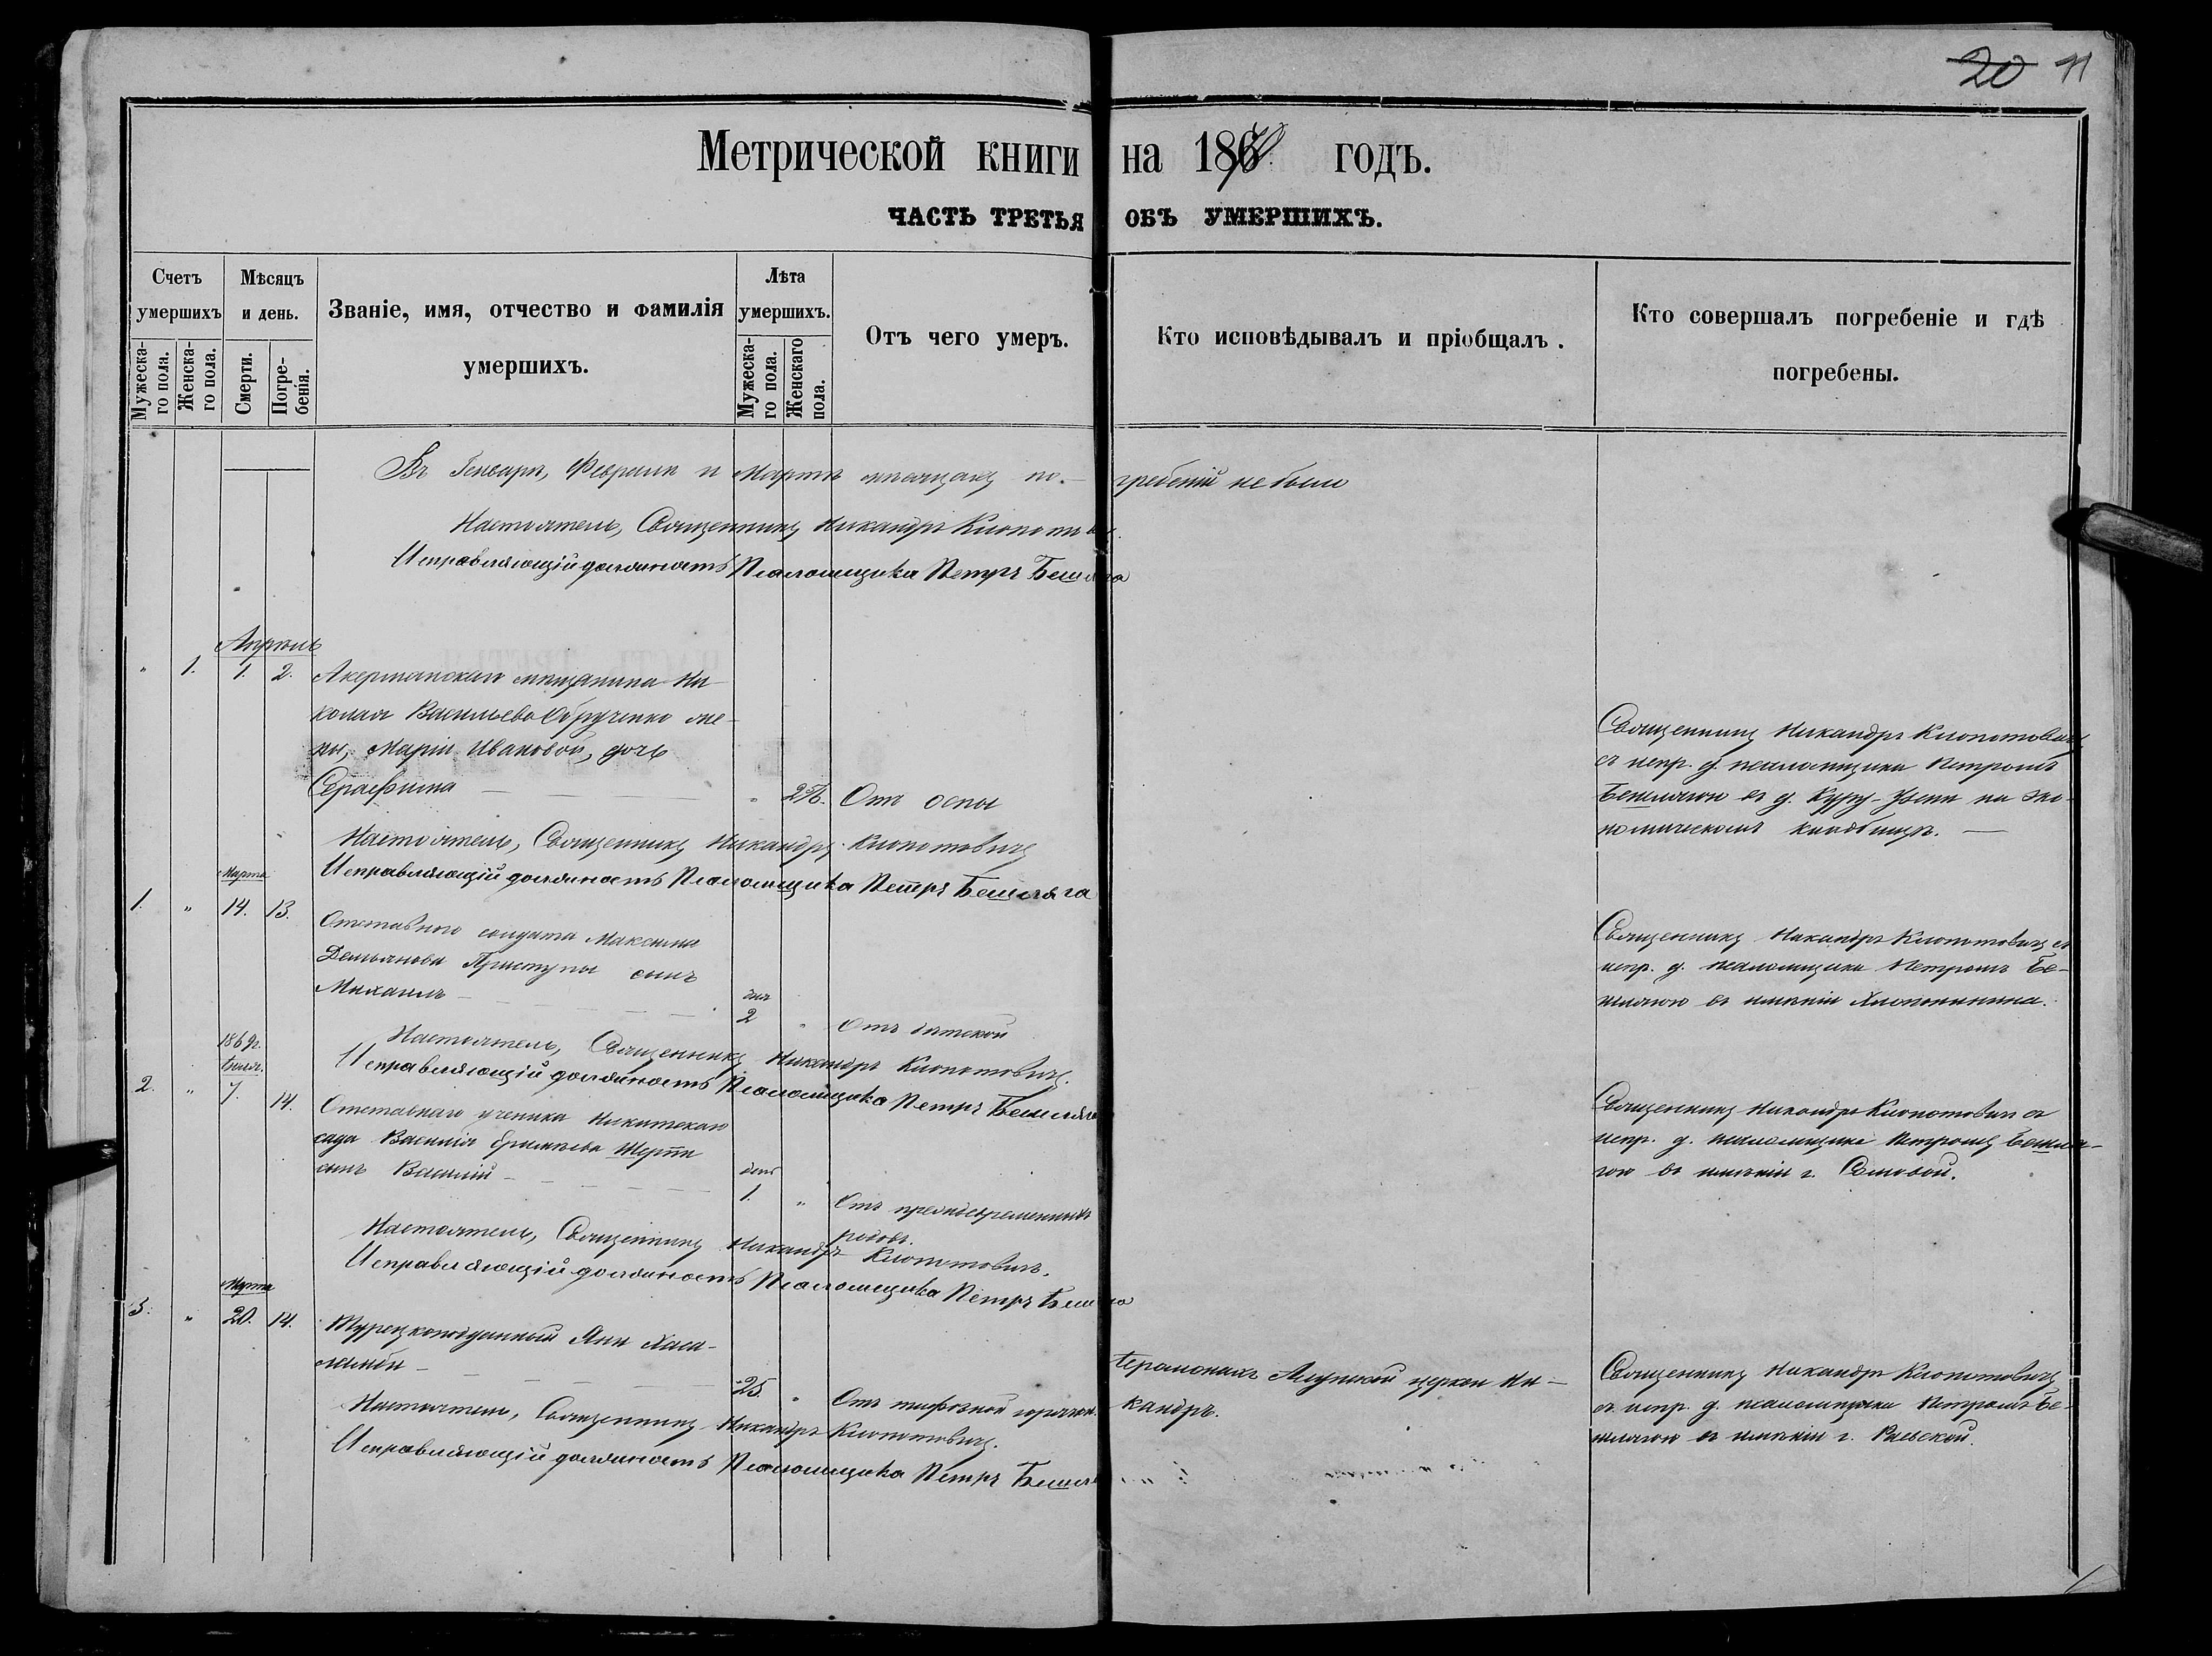 20 11
Метрической книги на 1870 годъ.
ЧАСТЬ ТРЕТЬЯ ОБЪ УМЕРШИХЪ.
Счетъ умершихъ
Мужескаго пола.
Женскаго пола.
Мѣсяцъ и день.
Смерти.
Погребенія.
Званіе, имя, отчество и фамилія
умершихъ.
Лѣта умершихъ.
Мужескаго пола.
Женскаго пола.
Отъ чего умеръ.
Кто исповѣдывалъ и пріобщалъ.
Кто совершалъ погребеніе и гдѣ
погребены.
Въ Генварѣ, Февралѣ и Мартѣ мѣсяцахъ по-гребеній не было
Настоятель, Священникъ Никандръ Клопотовичъ.
Исправляющій должность Псаломщика Петръ Бешляга
Апрѣль
" 1. 1. 2.
Акерманскаго мѣщанина Ни-
колая Васильева Обрученко же-
ны, Маріи Ивановой, дочь
Серафима
" Отъ оспы
Священникъ Никандръ Клопотовичъ
съ испр. д. псаломщика Петромъ
Бешлягою въ д. Куру-Узени на эко-
номическомъ кладбищѣ.
Настоятель, Священникъ Никандръ Клопотовичъ
Исправляющій должность Псаломщика Петръ Бешляга
Марта
1. " 14. 13.
Отставного солдата Максима
Демьянова Приступы сынъ
Михаилъ
2 " Отъ дѣтской
Священникъ Никандръ Клопотовичъ съ
испр. д. псаломщика Петромъ Бе-
шлягою въ имѣніи
Настоятель, Священникъ Никандръ Клопотовичъ.
Исправляющій должность Псаломщика Петръ Бешляга
1869г.
2. " 7. 14.
Отставнаго ученика Никитскаго
сада Василія сынъ Василій
день
1. " Отъ преждевременныхъ
родовъ.
Священникъ Никандръ Клопотовичъ съ
испр. д. псаломщика Петромъ Бешля-
гою въ имѣніи г.
Настоятель, Священникъ Никандръ Клопотовичъ.
Исправляющій должность Псаломщика Петръ Бешляга
Марта
3. " 20. 14.
Турецкоподданный Яни
25. " Отъ тифозной горячки.
Іеромонахъ церкви Ни-
кандръ.
Священникъ Никандръ Клопотовичъ
съ испр. д. псаломщика Петромъ Бе-
шлягою въ имѣніи г. Раевской.
Настоятель, Священникъ Никандръ Клопотовичъ.
Исправляющій должность Псаломщика Петръ Бешляга